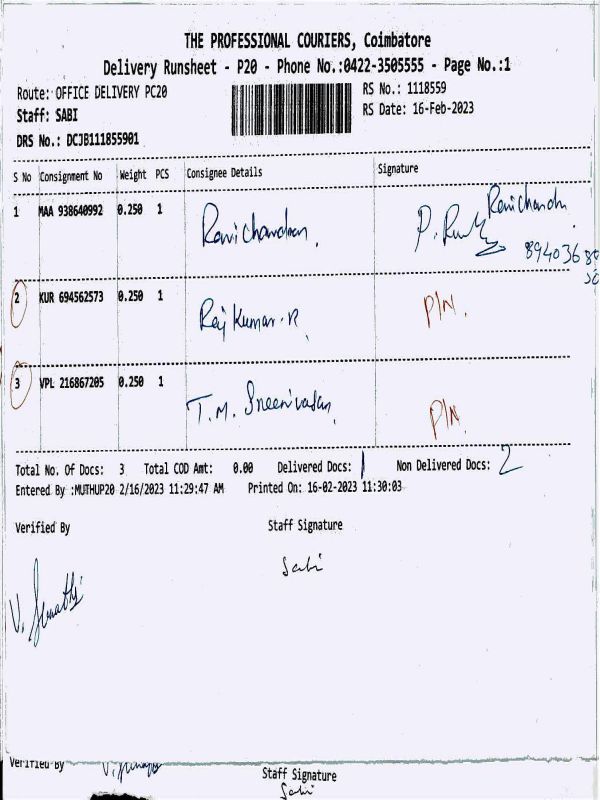 THE PROFESSIONAL COURIERS, Coimbatore
Delivery Runsheet - P20 - Phone No.:0422-3505555 - Page No.:1
Route: OFFICE DELIVERY PC20 RS No.: 1118559
Staff: SABI RS Date: 16-Feb-2023
DRS No.: DCJB111855901
S No Consignment No Weight PCS Consignee Details Signature
1 MAA 938640992 0.250 1 Ravichandran. P. Ravichandra
894036
2 KUR 694562573 0.250 1 Raj Kumar. R P/N.
3 VPL 216867205 0.250 1 T.M. Sreenivasan P/N.
Total No. Of Docs: 3 Total COD Amt: 0.00 Delivered Docs: 1 Non Delivered Docs: 2
Entered By :MUTHUP20 2/16/2023 11:29:47 AM Printed On: 16-02-2023 11:30:03
Verified By Staff Signature
Sabi
V.
Verified By V. Staff Signature
Sabi